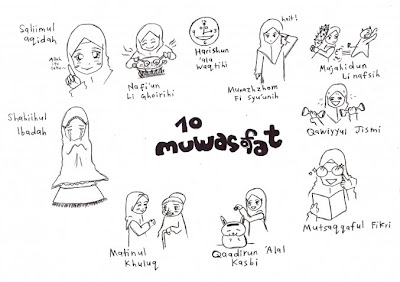 Saliimul
aqidah
Allah
itu
satu~
Nafi'un
Li Ghoirihi
Harishun
'ala
Waqtihi
hait!
Munazhzhom
Fi Syu'unih
Mujahidun
Li nafsih
Shahiihul
Ibadah
10
muwasofat
Qawiyyul Jismi
Matinul
Khuluq
Qaadirun 'Alal
Kasbi
Mutsaqqaful Fikri